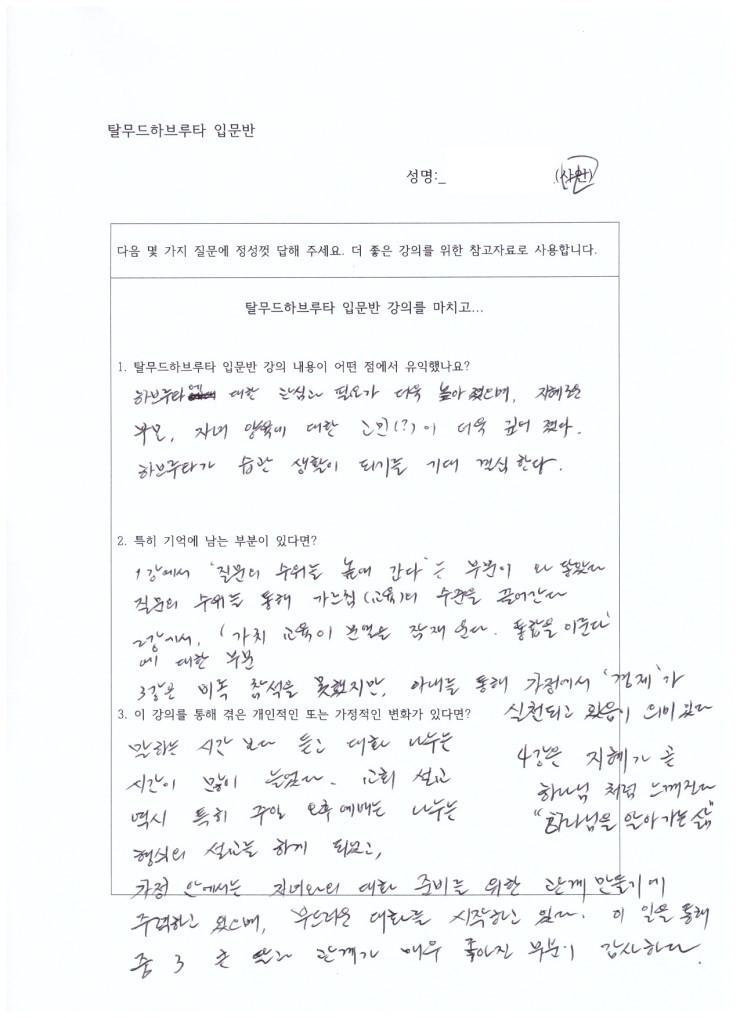 탈무드하브루타 입문반
성명:_
다음 몇 가지 질문에 정성껏 답해 주세요. 더 좋은 강의를 위한 참고자료로 사용합니다.
탈무드하브루타 입문반 강의를 마치고...
1. 탈무드하브루타 입문반 강의 내용이 어떤 점에서 유익했나요?
하브루타에 대한 관심과 필요가 더욱 높아 졌으며, 지혜로운
부모, 자녀 양육에 대한 고민(?)이 더욱 깊어 졌다.
하브루타가 습관 생활이 되기를 기대 결심 한다.
2. 특히 기억에 남는 부분이 있다면?
1강에서 '질문의 수위를 높여 간다'는 부분이 와 닿았다
질문의 수위를 통해 가르침(교육)의 수준을 끌어간다
2강에서, '가치 교육이 분열을 잠재 운다. 통합을 이룬다'
에 대한 부분
3강은 비록 참석을 못했지만, 아내를 통해 가정에서 '경제'가
실천되고 있음이 의미 있다
4강은 지혜가 곧
하나님 처럼 느껴진다
"하나님을 알아 가는 삶"
3. 이 강의를 통해 겪은 개인적인 또는 가정적인 변화가 있다면?
말하는 시간 보다 듣고 대화 나누는
시간이 많이 늘었다. 교회 설교
역시 특히 주일 오후예배는 나누는
형식의 설교를 하게 되었고,
가정 안에서는 자녀와의 대화 준비를 위한 관계 만들기에
주력하고 있으며, 부드러운 대화를 시작하고 있다. 이 일을 통해
중 3 큰 딸과 관계가 매우 좋아진 부분이 감사하다.